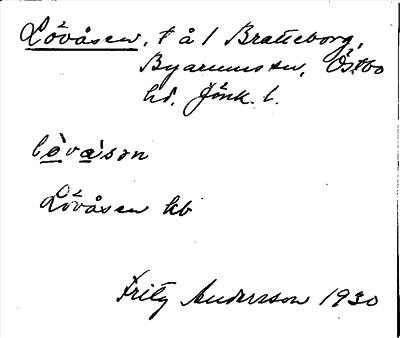 Lövåsen, t å 1 Bratteborg,
Byarums sn, Östbo
hd. Jönk. l.
lòvàsən
Lövåsen kb
Fritz Andersson 1930